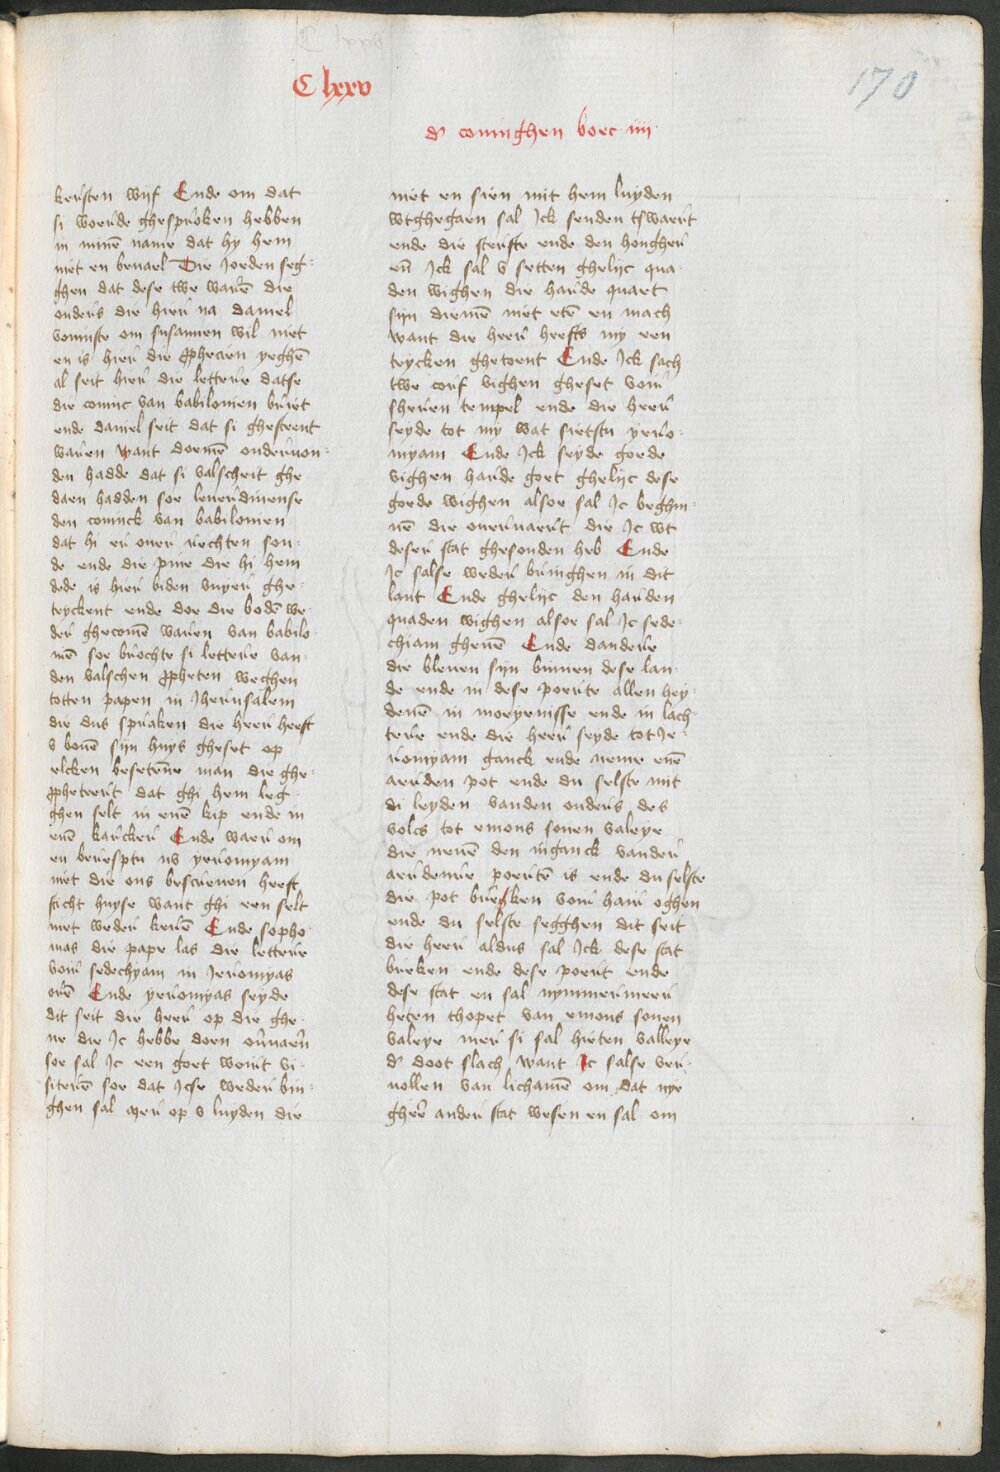 C lxxv
170
d' coninghen boec iiii
kersten wijf Ende om dat
si woerde ghesproken hebben
in minē name dat hy hem
niet en beuael Die Joeden seg-
ghen dat dese twe warē die
ouders die hier na daniel
vonnste om susannen wil niet
en is hier die ꝓphecien yeghē
al seit hier die lettere datse
die coninc van babilonien briet
ende daniel seit dat si ghesteent
waren want doemē onderuon-
den hadde dat si valscheit ghe-
daen hadden soe leuerdmense
den coninck van babilonien
dat hi er ouer rechten sou-
de ende die pine die hi hem
dede is hier biden vuyer ghe-
teyckent ende doe die bodē we-
der ghecomē waren van babilo-
niē soe brochte si lettere van
den valschen ꝓpheten weghen
totten papen in Jherusalem
die dus spraken die heer heeft
v bouē sijn huys gheset op
elcken besetēne man die ghe-
ꝓpheteert dat ghi hem leg-
ghen selt in enē kip ende in
enē karcker Ende waer om
en beresptu nv yeromyam
niet die ons bescreuen heeft
sticht huyse want ghi een selt
niet weder kerē Ende sopho-
nias die pape las die lettere
voir sedechyam in Jeromyas
orē Ende yeromyas seyde
dit seit die heer op die ghe-
ne die Jc hebbe doen ouuaerē
soe sal Jc een goet woirt vi-
siterē soe dat Jcse weder brin-
ghen sal mer op v luyden die
niet en sien mit hem luyden
wtghegaen sal Jck senden tswaert
ende die sterfte ende den hongher
eñ Jck sal v setten ghelijc qua-
den vighen die harde quaet
sijn diemē niet etē en mach
want die heer heefts my een
teycken ghetoent Ende Jck sach
twe corf vighen gheset voir
sheren tempel ende die heer
seyde tot my wat sietstu yero-
myam Ende Jck seyde goede
vighen harde goet ghelijc dese
goede wighen alsoe sal Jc beghin-
nē die ouervaert die Jc wt
deser stat ghesonden heb Ende
Jc salse weder bringhen in dit
lant Ende ghelijc den harden
quaden wighen alsoe sal Jc sede-
chiam gheuē Ende dandere
die bleuen sijn binnen dese lan-
de ende in dese poerte allen hey-
denē in moeyenisse ende in lach-
tere ende die heer seyde tot Je-
romyam ganck ende neme enē
aerden pot ende du selste mit
di leyden vanden ouders des
volcs tot emons sonen valeye
die neuē den inganck vander
aerdenre poertē is ende du selste
die pot breken voir hair oghen
ende du selste segghen dit seit
die heer aldus sal Jck dese stat
breken ende dese poert ende
dese stat en sal nymmermeer
heten thopet van emons sonen
valeye mer si sal hieten valleye
d' doot slach want Jc salse ver-
uollen van lichamē om dat nye
gheē ander stat wesen en sal om